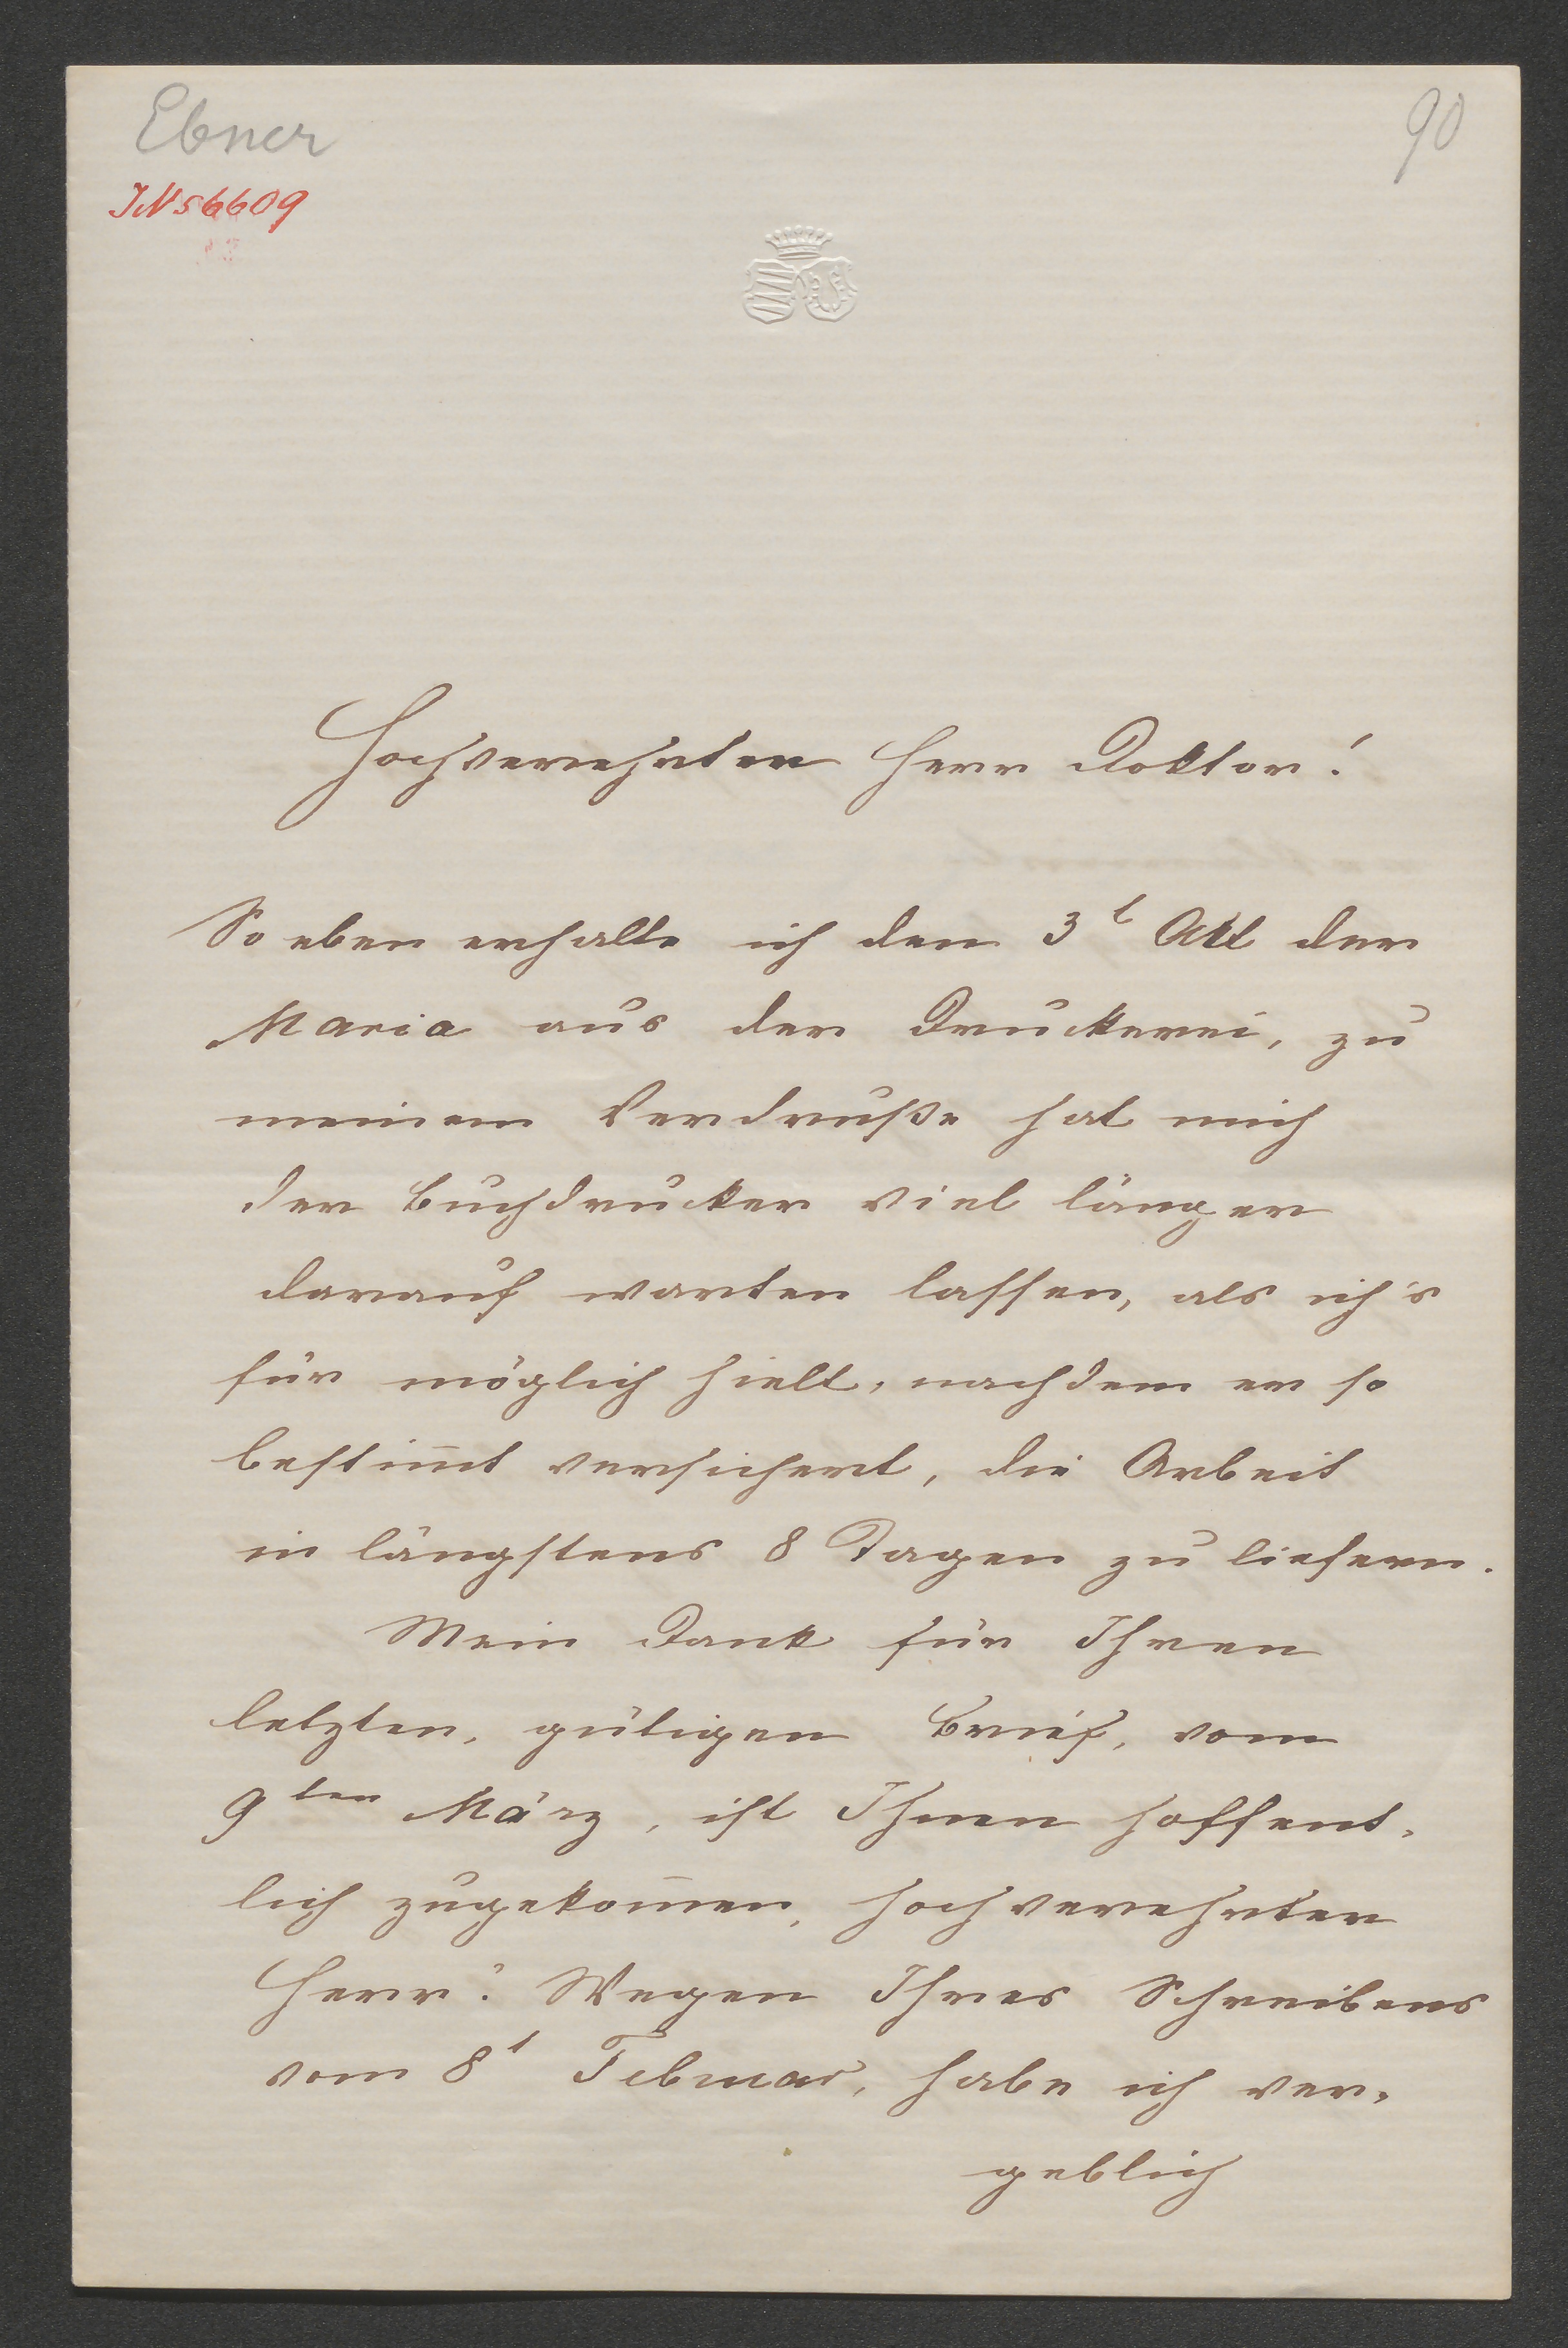 Ebner
90
IN 56609
Hochverehrter Herr Doktor!
So eben erhalte ich den 3t Akt der
Maria aus der Druckerei, zu
meinem Verdruße hat mich
der Buchdrucker viel länger
darauf warten lassen, als ich's
für möglich hielt, nachdem er so
bestim̅t versichert, die Arbeit
in längstens 8 Tagen zu liefern.
Mein Dank für Ihren
letzten, gütigen Brief, vom
9ten März, ist Ihnen hoffent-
lich zugekom̅en, hochverehrter
Herr! Wegen Ihres Schreibens
vom 8t Februar, habe ich ver-
geblich